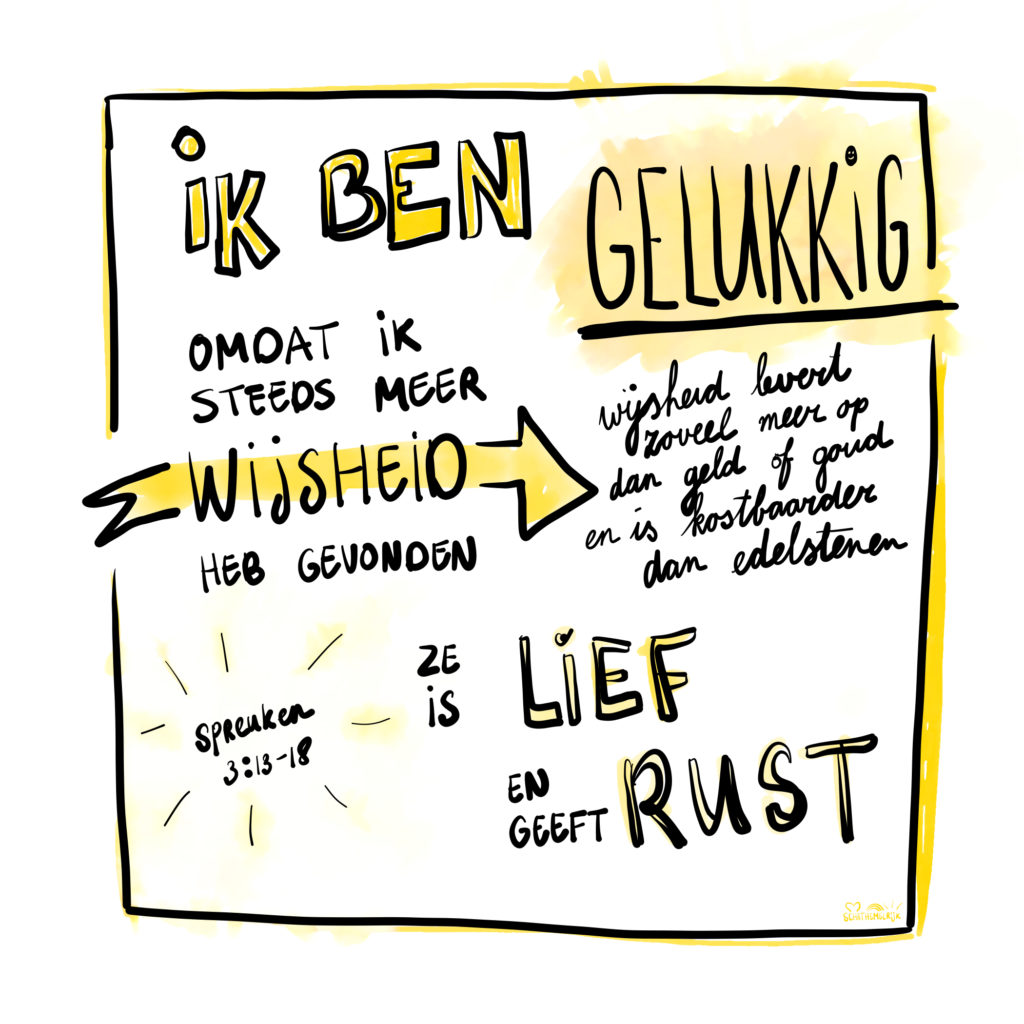 iK BEN
GELUKKiG
OMDAT iK
STEEDS MEER
WijSHEiD
HEB GEVONDEN
wijsheid levert
zoveel meer op
dan geld of goud
en is kostbaarder
dan edelstenen
ZE
iS
LiEF
EN
GEEFT
RUST
Spreuken
3:13-18